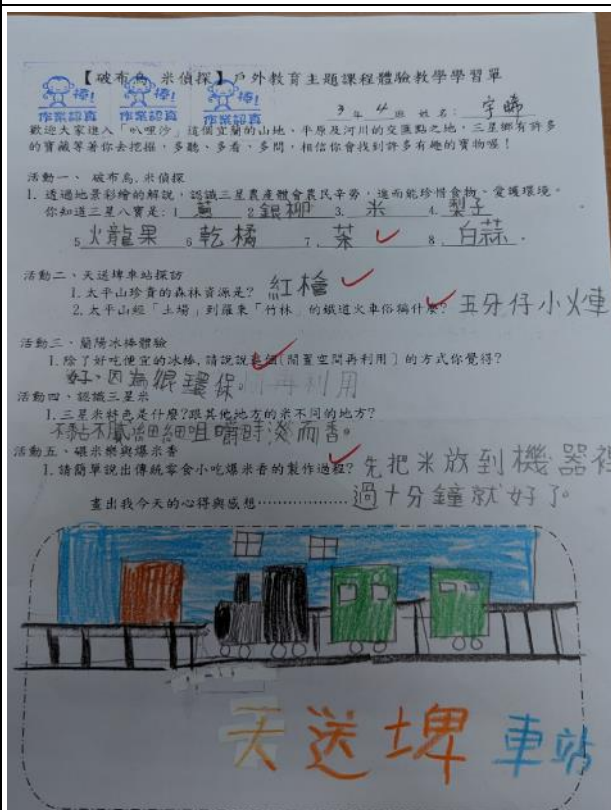 【破布烏.米偵探】戶外教育主題課程體驗教學學習單
棒! 棒! 棒!
作業認真 作業認真 作業認真
3年4班 姓名: 宇晞
歡迎大家進入「叭哩沙」這個宜蘭的山地、平原及河川的交匯點之地,三星鄉有許多
的寶藏等著你去挖掘,多聽、多看、多問,相信你會找到許多有趣的寶物喔!
活動一、 破布烏.米偵探
1. 透過地景彩繪的解說,認識三星農產體會農民辛勞,進而能珍惜食物、愛護環境。
你知道三星八寶是:1 蔥 2 銀柳 3. 米 4. 梨子
5 火龍果 6 乾橘 7. 茶 8. 白蒜.
活動二、天送埤車站探訪
1.太平山珍貴的森林資源是? 紅檜
2.太平山經「土場」到羅東「竹林」的鐵道火車俗稱什麼? 五分仔小火車
活動三、蘭陽冰棒體驗
1.除了好吃便宜的冰棒,請說說這個[閒置空間再利用]的方式你覺得?
好,因為很環保。再利用
活動四、認識三星米
1.三星米特色是什麼?跟其他地方的米不同的地方?
不黏不膩細細咀嚼時淡而香。
活動五、碾米樂與爆米香
1.請簡單說出傳統零食小吃爆米香的製作過程? 先把米放到機器裡
過十分鐘就好了。
畫出我今天的心得與感想………………
天送埤車站